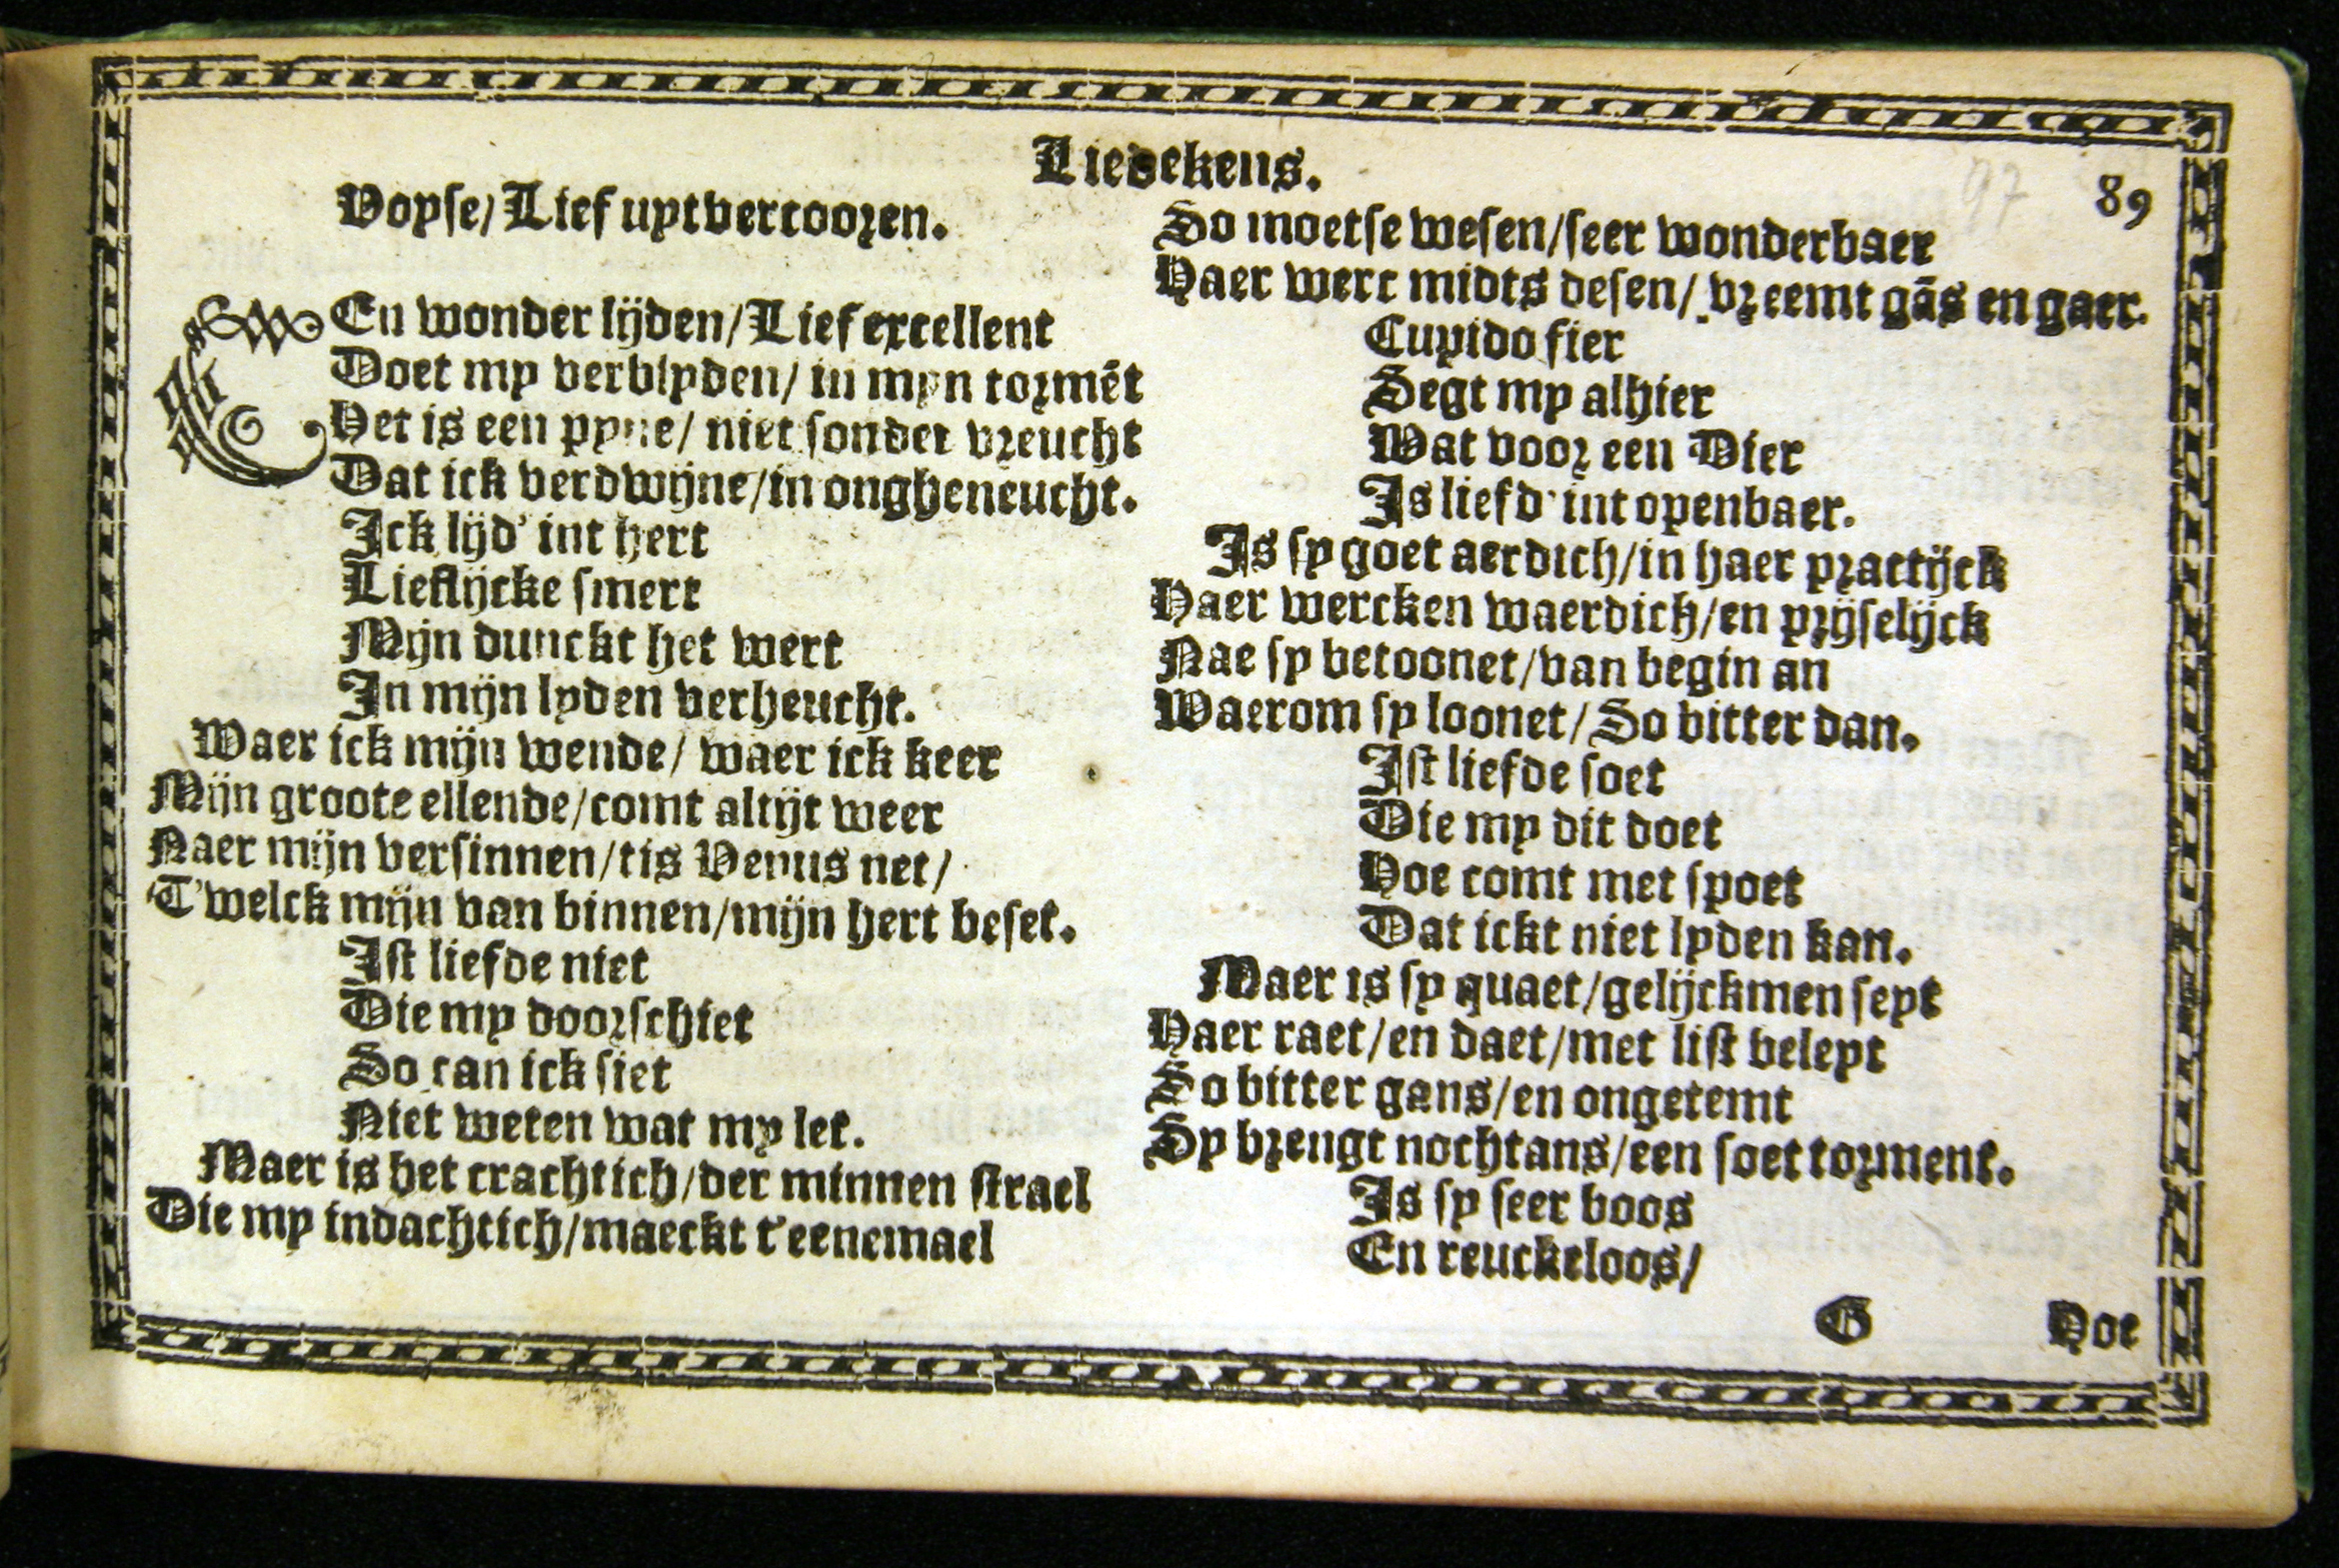 Liedekens.
89
97
Voyse/ Lief uytvercooren.
EEn wonder lijden/ Lief excellent
Doet my verblyden/ in myn tormēt
Het is een pyne/ niet sonder vreucht
Dat ick verdwijne/in ongheneucht.
Ick lijd' int hert
Lieflijcke smert
Mijn dunckt het wert
In mijn lyden verheucht.
Waer ick mijn wende/ waer ick keer
Mijn groote ellende/comt altijt weer
Naer mijn versinnen/tis Venus net/
T'welck mijn van binnen/mijn hert beset.
Ist liefde niet
Die my doorschiet
So can ick siet
Niet weten wat my let.
Maer is het crachtich/der minnen strael
Die my indachtich/maeckt t'eenemael
So moetse wesen/seer wonderbaer
Haer werc midts desen/ vreemt gās en gaer.
Cupido fier
Segt my alhier
Wat voor een Dier
Is liefd' int openbaer.
Is sy goet aerdich/in haer practijck
Haer wercken waerdich/en prijselijck
Nae sy betoonet/van begin an
Waerom sy loonet/ So bitter dan.
Ist liefde soet
Die my dit doet
Hoe comt met spoet
Dat ickt niet lyden kan.
Maer is sy quaet/gelijckmen seyt
Haer raet/en daet/met list beleyt
So bitter gans/en ongetemt
Sy brengt nochtans/een soet torment.
Is sy seer boos
En reuckeloos/
G
Hoe